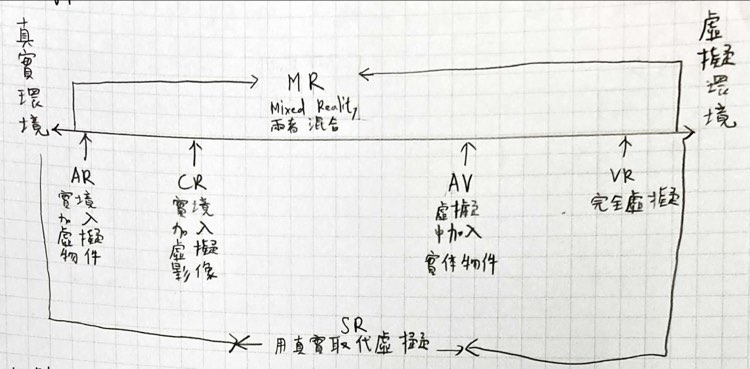 真實環境
虛擬環境
MR
Mixed Reality
兩者混合
AR
實境
加入
虛擬
物件
CR
實境
加入
虛擬
影像
AV
虛擬
中加入
實体物件
VR
完全虛擬
SR
用真實取代虛擬